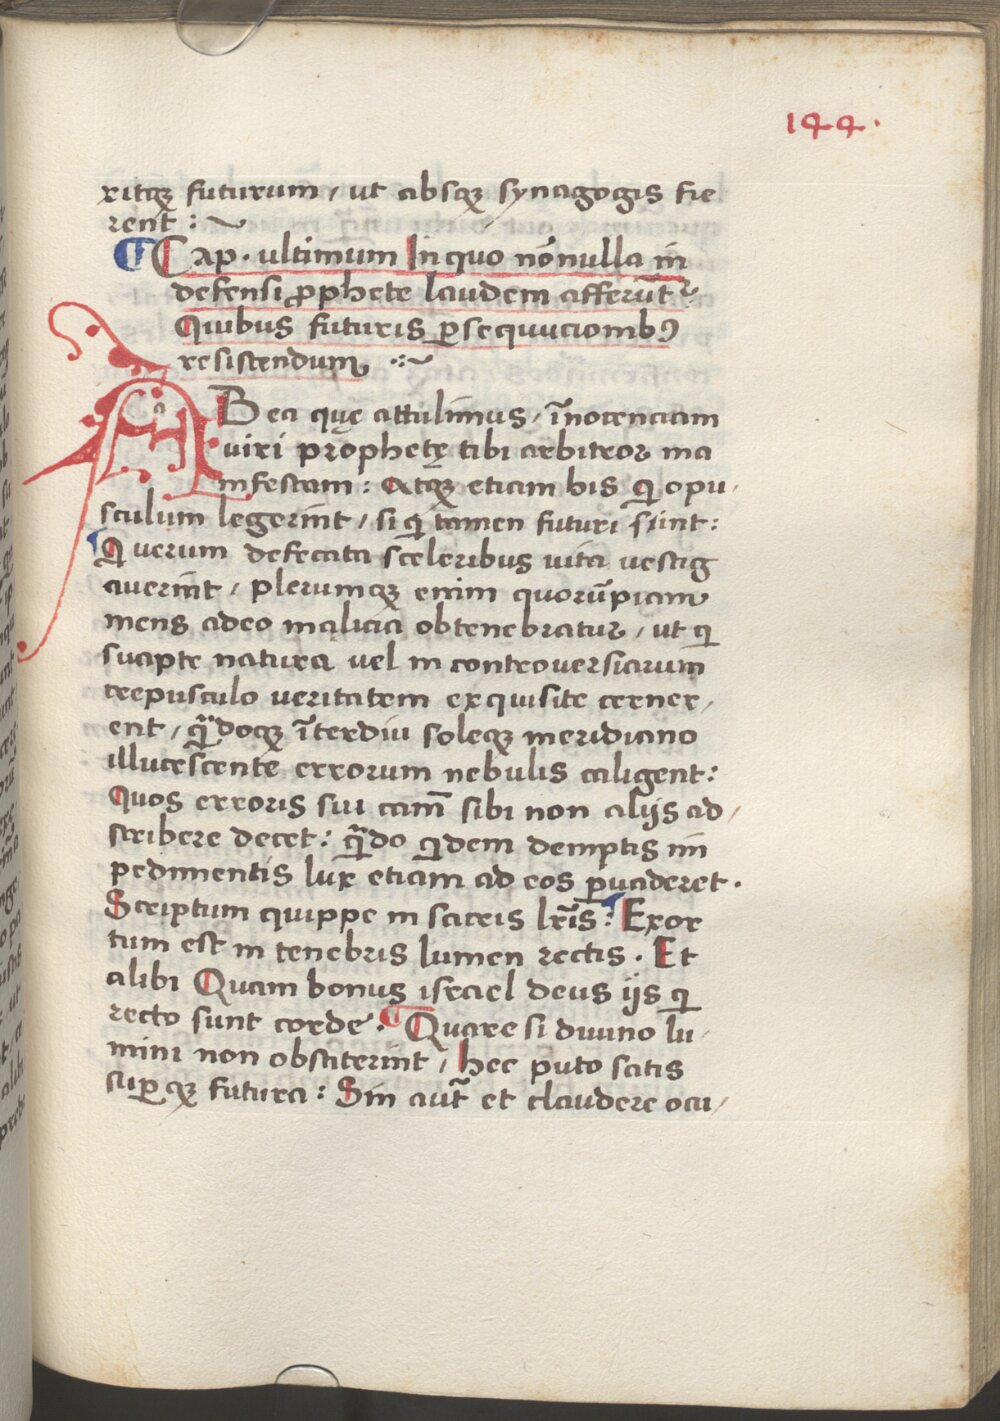 144.
ritqꝫ futurum / ut absqꝫ synagogis fie
rent :~
¶ Cap. ultimum In quo nōnulla in
defensi ꝓphete laudem afferūt᷑
Quibus futuris ꝑsequucionibꝰ
resistendum .:~
AB ea quę attulimus / īnocenciam
viri prophetę tibi arbitror ma
nifestam : Atqꝫ etiam his q̄ opu /
sculum legerint / si q̄ tamen futuri sūnt :
Quorum defecata sceleribus vita vestig
averint / plerumqꝫ enim quorūpiam
mens adeo malicia obtenebratur / ut q̄
suapte natura vel in controversiarum
crepusculo veritatem exquisite cerner /
ent / qn̄doqꝫ īterdiu soleqꝫ meridiano
illucescente errorum nebulis caligent :
Quos erroris sui cam̄ sibi non alijs ad /
scribere decet : qn̄do q̄dem demptis im
pedimentis lux etiam ad eos ꝑvaderet .
Scriptum quippe in sacris lr̄is : Exor
tum est in tenebris lumen rectis . Et
alibi Quam bonus israel deus ijs q̄
recto sunt corde . ¶ Quare si divino lu /
mini non obstiterint / hec puto satis
suꝑqꝫ futura : Sin aut̄ et claudere ocu /